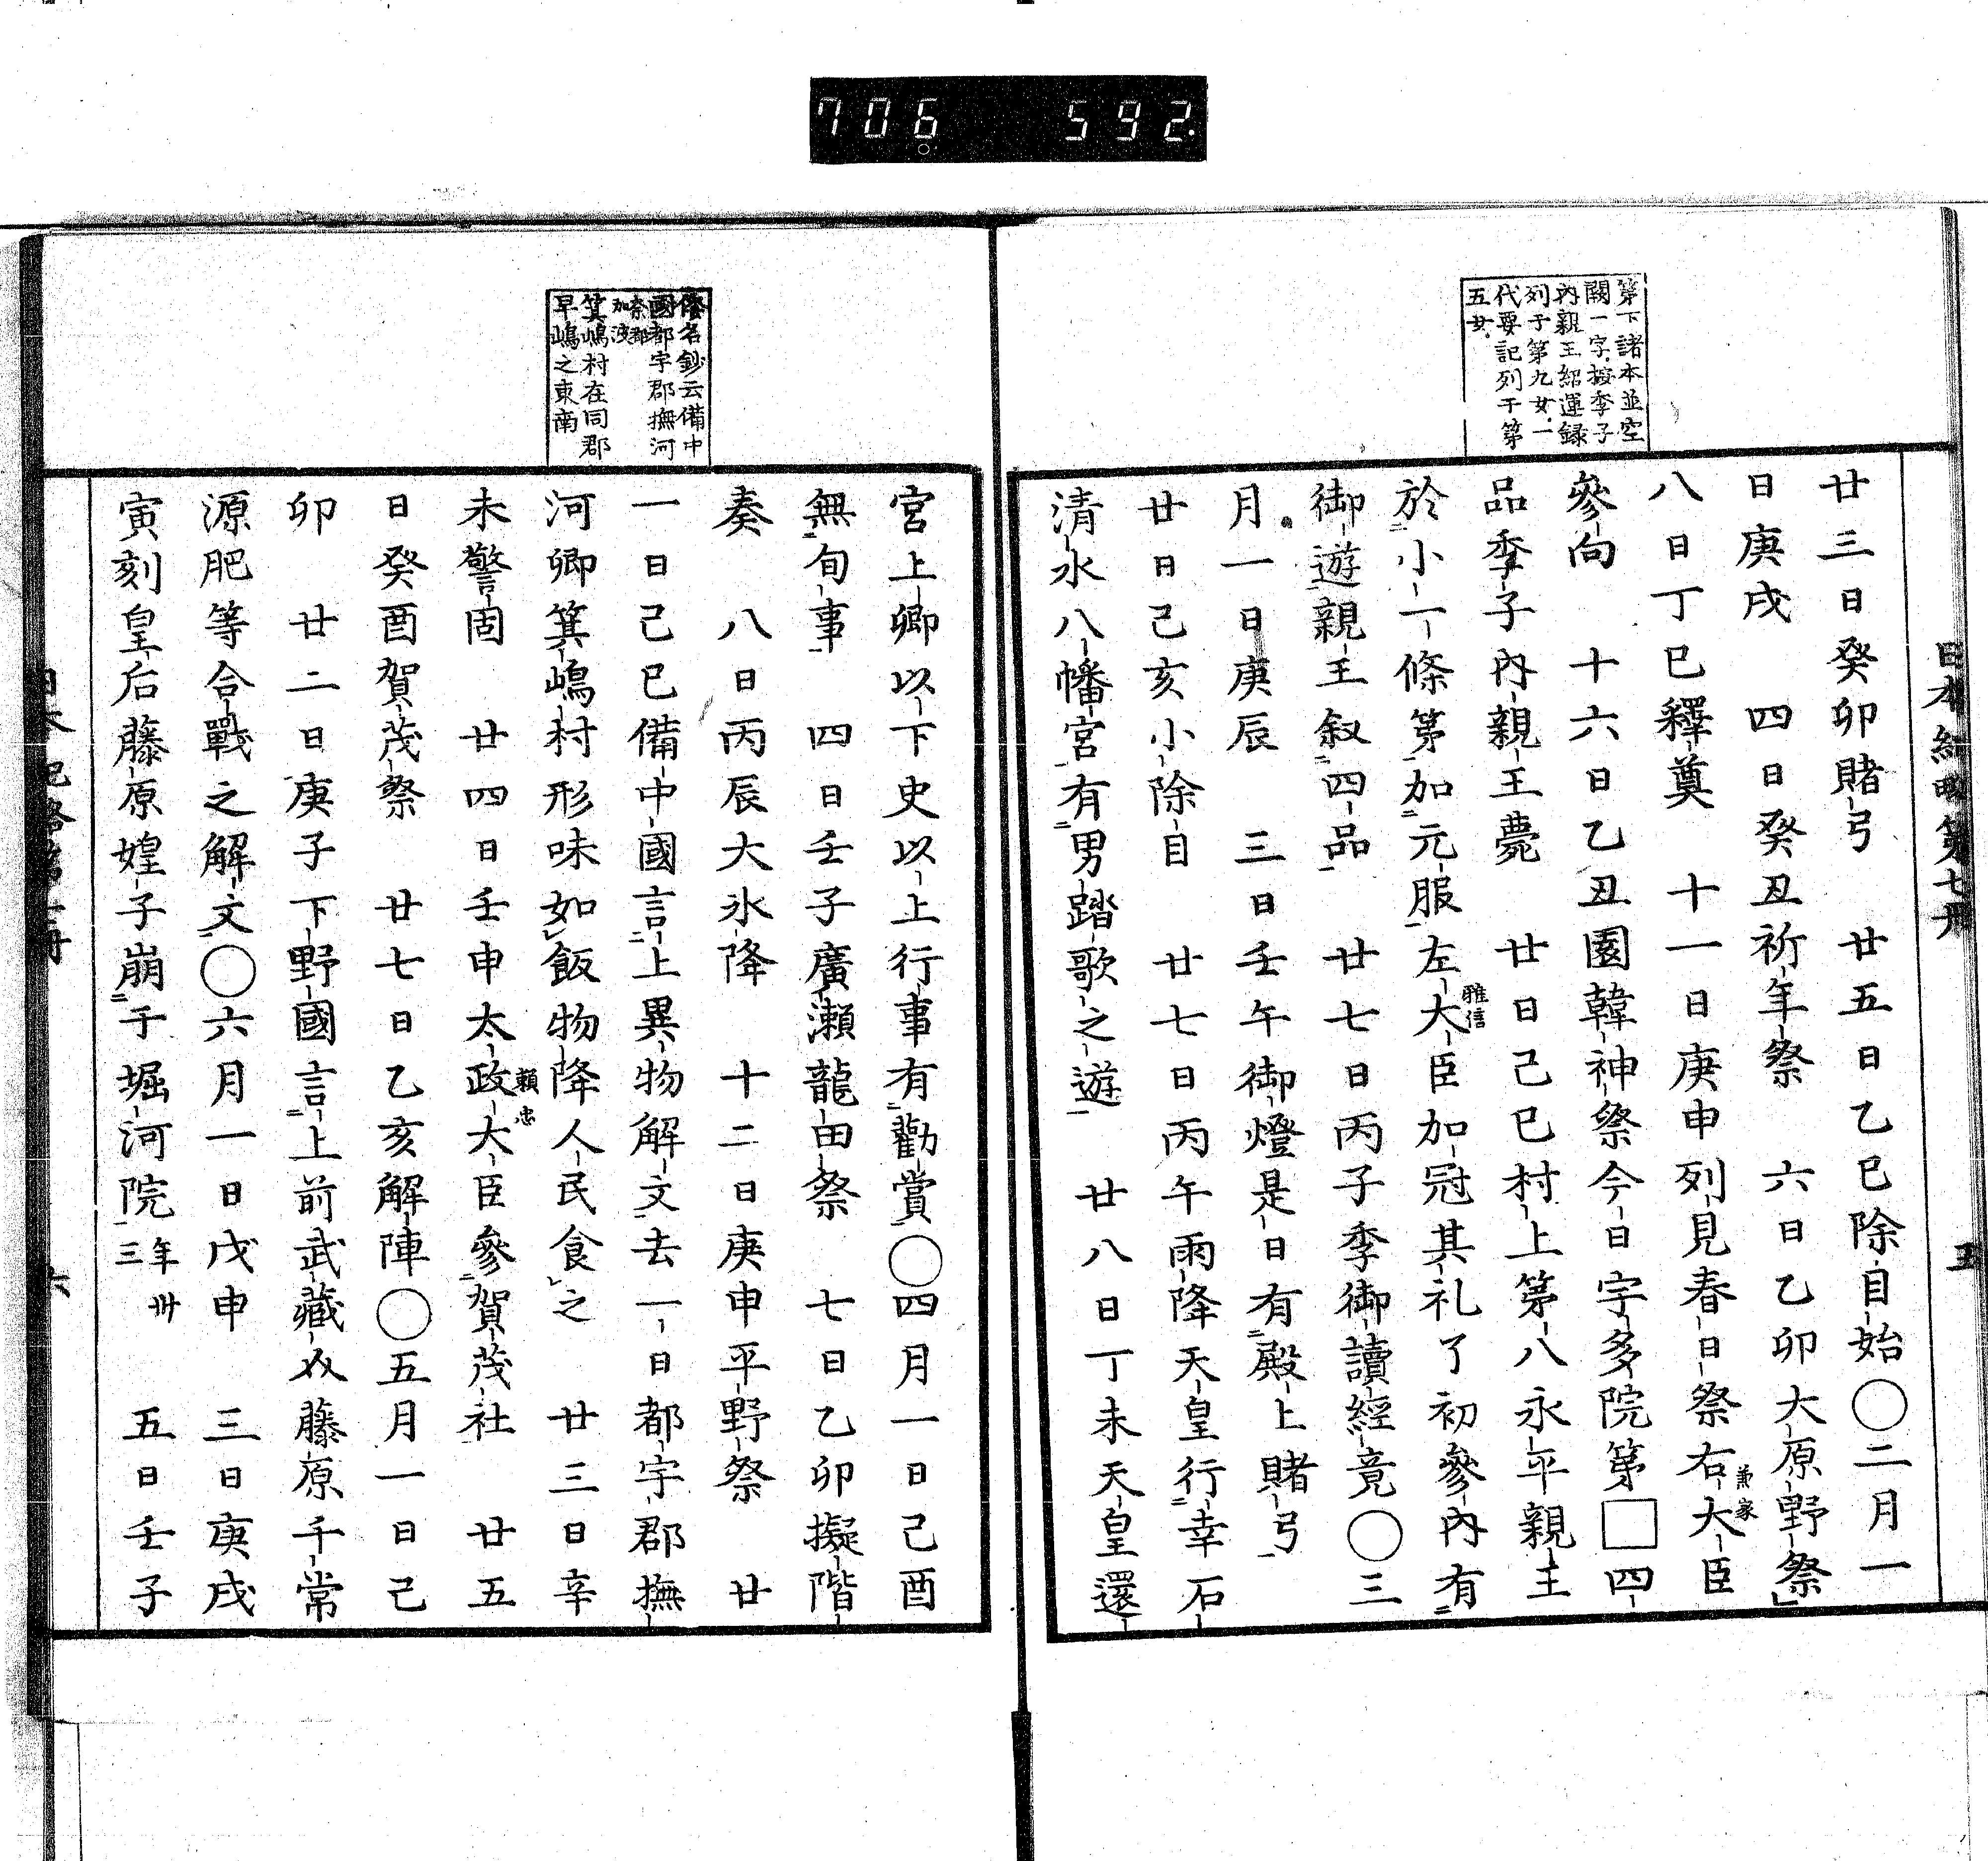 706 592
日本紀略第七冊
五
第下諸本並空
闕一字按季子
內親王紹運録
列于第九女一
代要記列于第
五女
廿三日癸卯賭弓 廿五日乙巳除目始〇二月一
日庚戌 四日癸丑祈年祭 六日乙卯大原野祭
八日丁巳釋奠 十一日庚申列見春日祭右大臣
兼家
參向 十六日乙丑園韓神祭今日宇多院第□四
品季子內親王薨 廿日己巳村上第八永平親王
於小一條第加元服左大臣加冠其礼了初參內有
雅信
御遊親王叙四品 廿七日丙子季御讀經竟〇三
月一日庚辰 三日壬午御燈是日有殿上賭弓
廿日己亥小除目 廿七日丙午雨降天皇行幸石
清水八幡宮有男踏歌之遊 廿八日丁未天皇還
倭名鈔云備中
國都宇郡撫河
奈都
加波
箕嶋村在同郡
早嶋之東南
宮上卿以下史以上行事有勸賞〇四月一日己酉
無旬事 四日壬子廣瀨龍田祭 七日乙卯擬階
奏 八日丙辰大氷降 十二日庚申平野祭 廿
一日己巳備中國言上異物解文去一日都宇郡撫
河鄉箕嶋村形味如飯物降人民食之 廿三日辛
未警固 廿四日壬申太政大臣參賀茂社 廿五
賴忠
日癸酉賀茂祭 廿七日乙亥解陣〇五月一日己
卯 廿二日庚子下野國言上前武藏介藤原千常
源肥等合戰之解文〇六月一日戊申 三日庚戌
寅刻皇后藤原媓子崩于堀河院年卅三 五日壬子
六